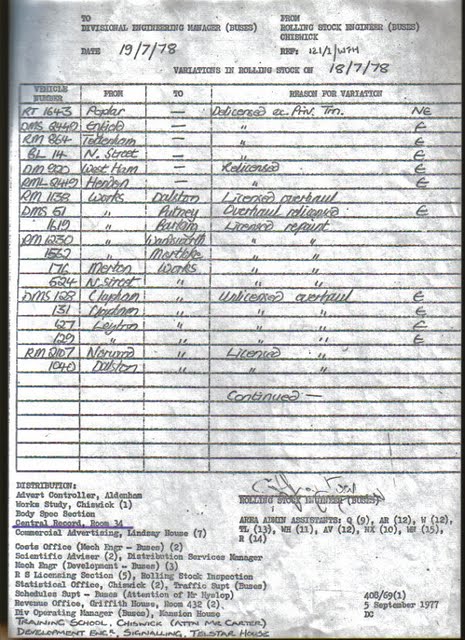 TO FROM
DIVISIONAL ENGINEERING MANAGER (BUSES) ROLLING STOCK ENGINEER (BUSES)
CHISWICK
DATE 19/7/78 REF: 121/1/WTH
VARIATIONS IN ROLLING STOCK ON 18/7/78
VEHICLE NUMBER FROM TO REASON FOR VARIATION
RT 1643 Poplar — Delicensed ex. Priv. Trn. NE
DMS 2440 Enfield — " E
RM 864 Tottenham — " E
BL 14 N. Street — " E
DM 920 West Ham — Relicensed E
RML 2449 Hendon — " E
RM 1138 Works Dalston Licensed overhaul
DMS 51 " Putney Overhaul relicensed E
1619 " Barking Licensed repaint
RM 1230 " Wandsworth " "
1562 " Mortlake " "
176 Merton Works " "
624 N. Street " " "
DMS 128 Clapham " Unlicensed overhaul E
131 Clapham " " " E
627 Leyton " " " E
629 " " " " E
RM 2107 Norwood " Licensed "
1040 Dalston " " "
Continued —
DISTRIBUTION:
Advert Controller, Aldenham
Works Study, Chiswick (1)
Body Spec Section
Central Record, Room 34
Commercial Advertising, Lindsay House (7)
Costs Office (Mech Engr - Buses) (2)
Scientific Adviser (2), Distribution Services Manager
Mech Engr (Development - Buses) (3)
R S Licensing Section (5), Rolling Stock Inspection
Statistical Office, Chiswick (2), Traffic Supt (Buses)
Schedules Supt - Buses (Attention of Mr Hyslop)
Revenue Office, Griffith House, Room 432 (2).
Div Operating Manager (Buses), Mansion House
TRAINING SCHOOL, CHISWICK (ATTN MR. CARTER)
DEVELOPMENT ENG<sup>R</sup>, SIGNALLING, TELSTAR HOUSE
ROLLING STOCK ENGINEER (BUSES)
AREA ADMIN ASSISTANTS: Q (9), AR (12), W (12),
TL (13), WH (11), AV (12), NX (10), (15),
R (14)
408/69(1)
5 September 1977
DC